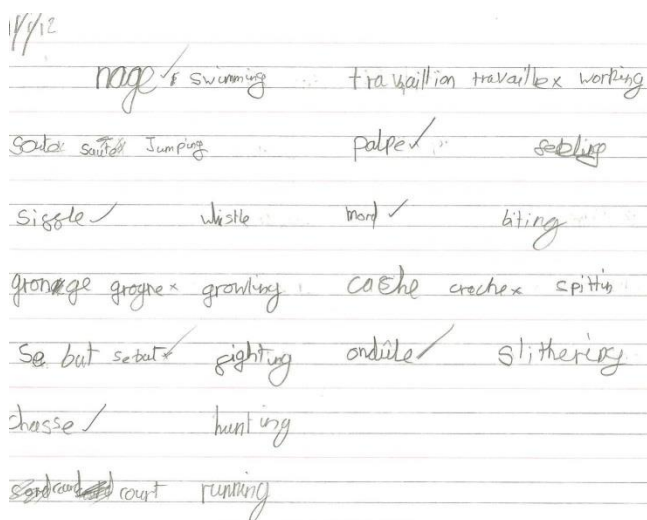 nage ✓ swimming travaillion travaille x working
saute Jumping palpe ✓
siffle ✓ whistle mord ✓ biting
grogne x growling cache crache x spittin
Se but se bat ✓ fighting ondule ✓ slithering
chasse ✓ hunting
court running